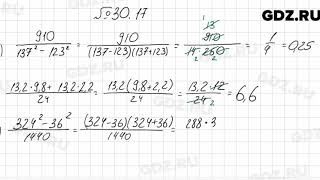 GDZ.RU
№30.17
) 910 / (137² - 123²) = 910 / ((137-123)(137+123)) = 910 / (14·260) = 1/4 = 0,25
(13,2·9,8 + 13,2·2,2) / 24 = 13,2(9,8+2,2) / 24 = 13,2·12 / 24 = 6,6
) (324² - 36²) / 1440 = (324-36)(324+36) / 1440 = 288·3